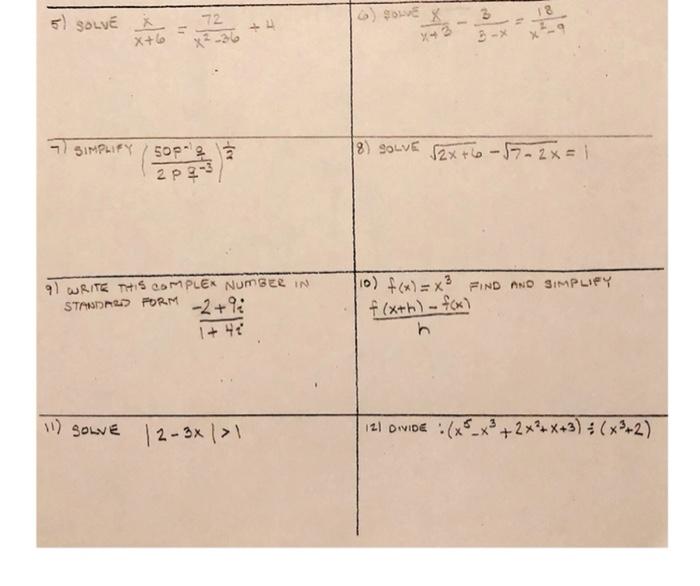 5) SOLVE x/(x+6) = 72/(x²-36) + 4
6) SOLVE x/(x+3) - 3/(3-x) = 18/(x²-9)
7) SIMPLIFY (50p⁻¹q / 2pq⁻³)^(1/2)
8) SOLVE √(2x+6) - √(7-2x) = 1
9) WRITE THIS COMPLEX NUMBER IN
STANDARD FORM (-2+9i)/(1+4i)
10) f(x) = x³ FIND AND SIMPLIFY
(f(x+h) - f(x))/h
11) SOLVE |2-3x| > 1
12) DIVIDE : (x⁵-x³+2x²+x+3) ÷ (x³+2)